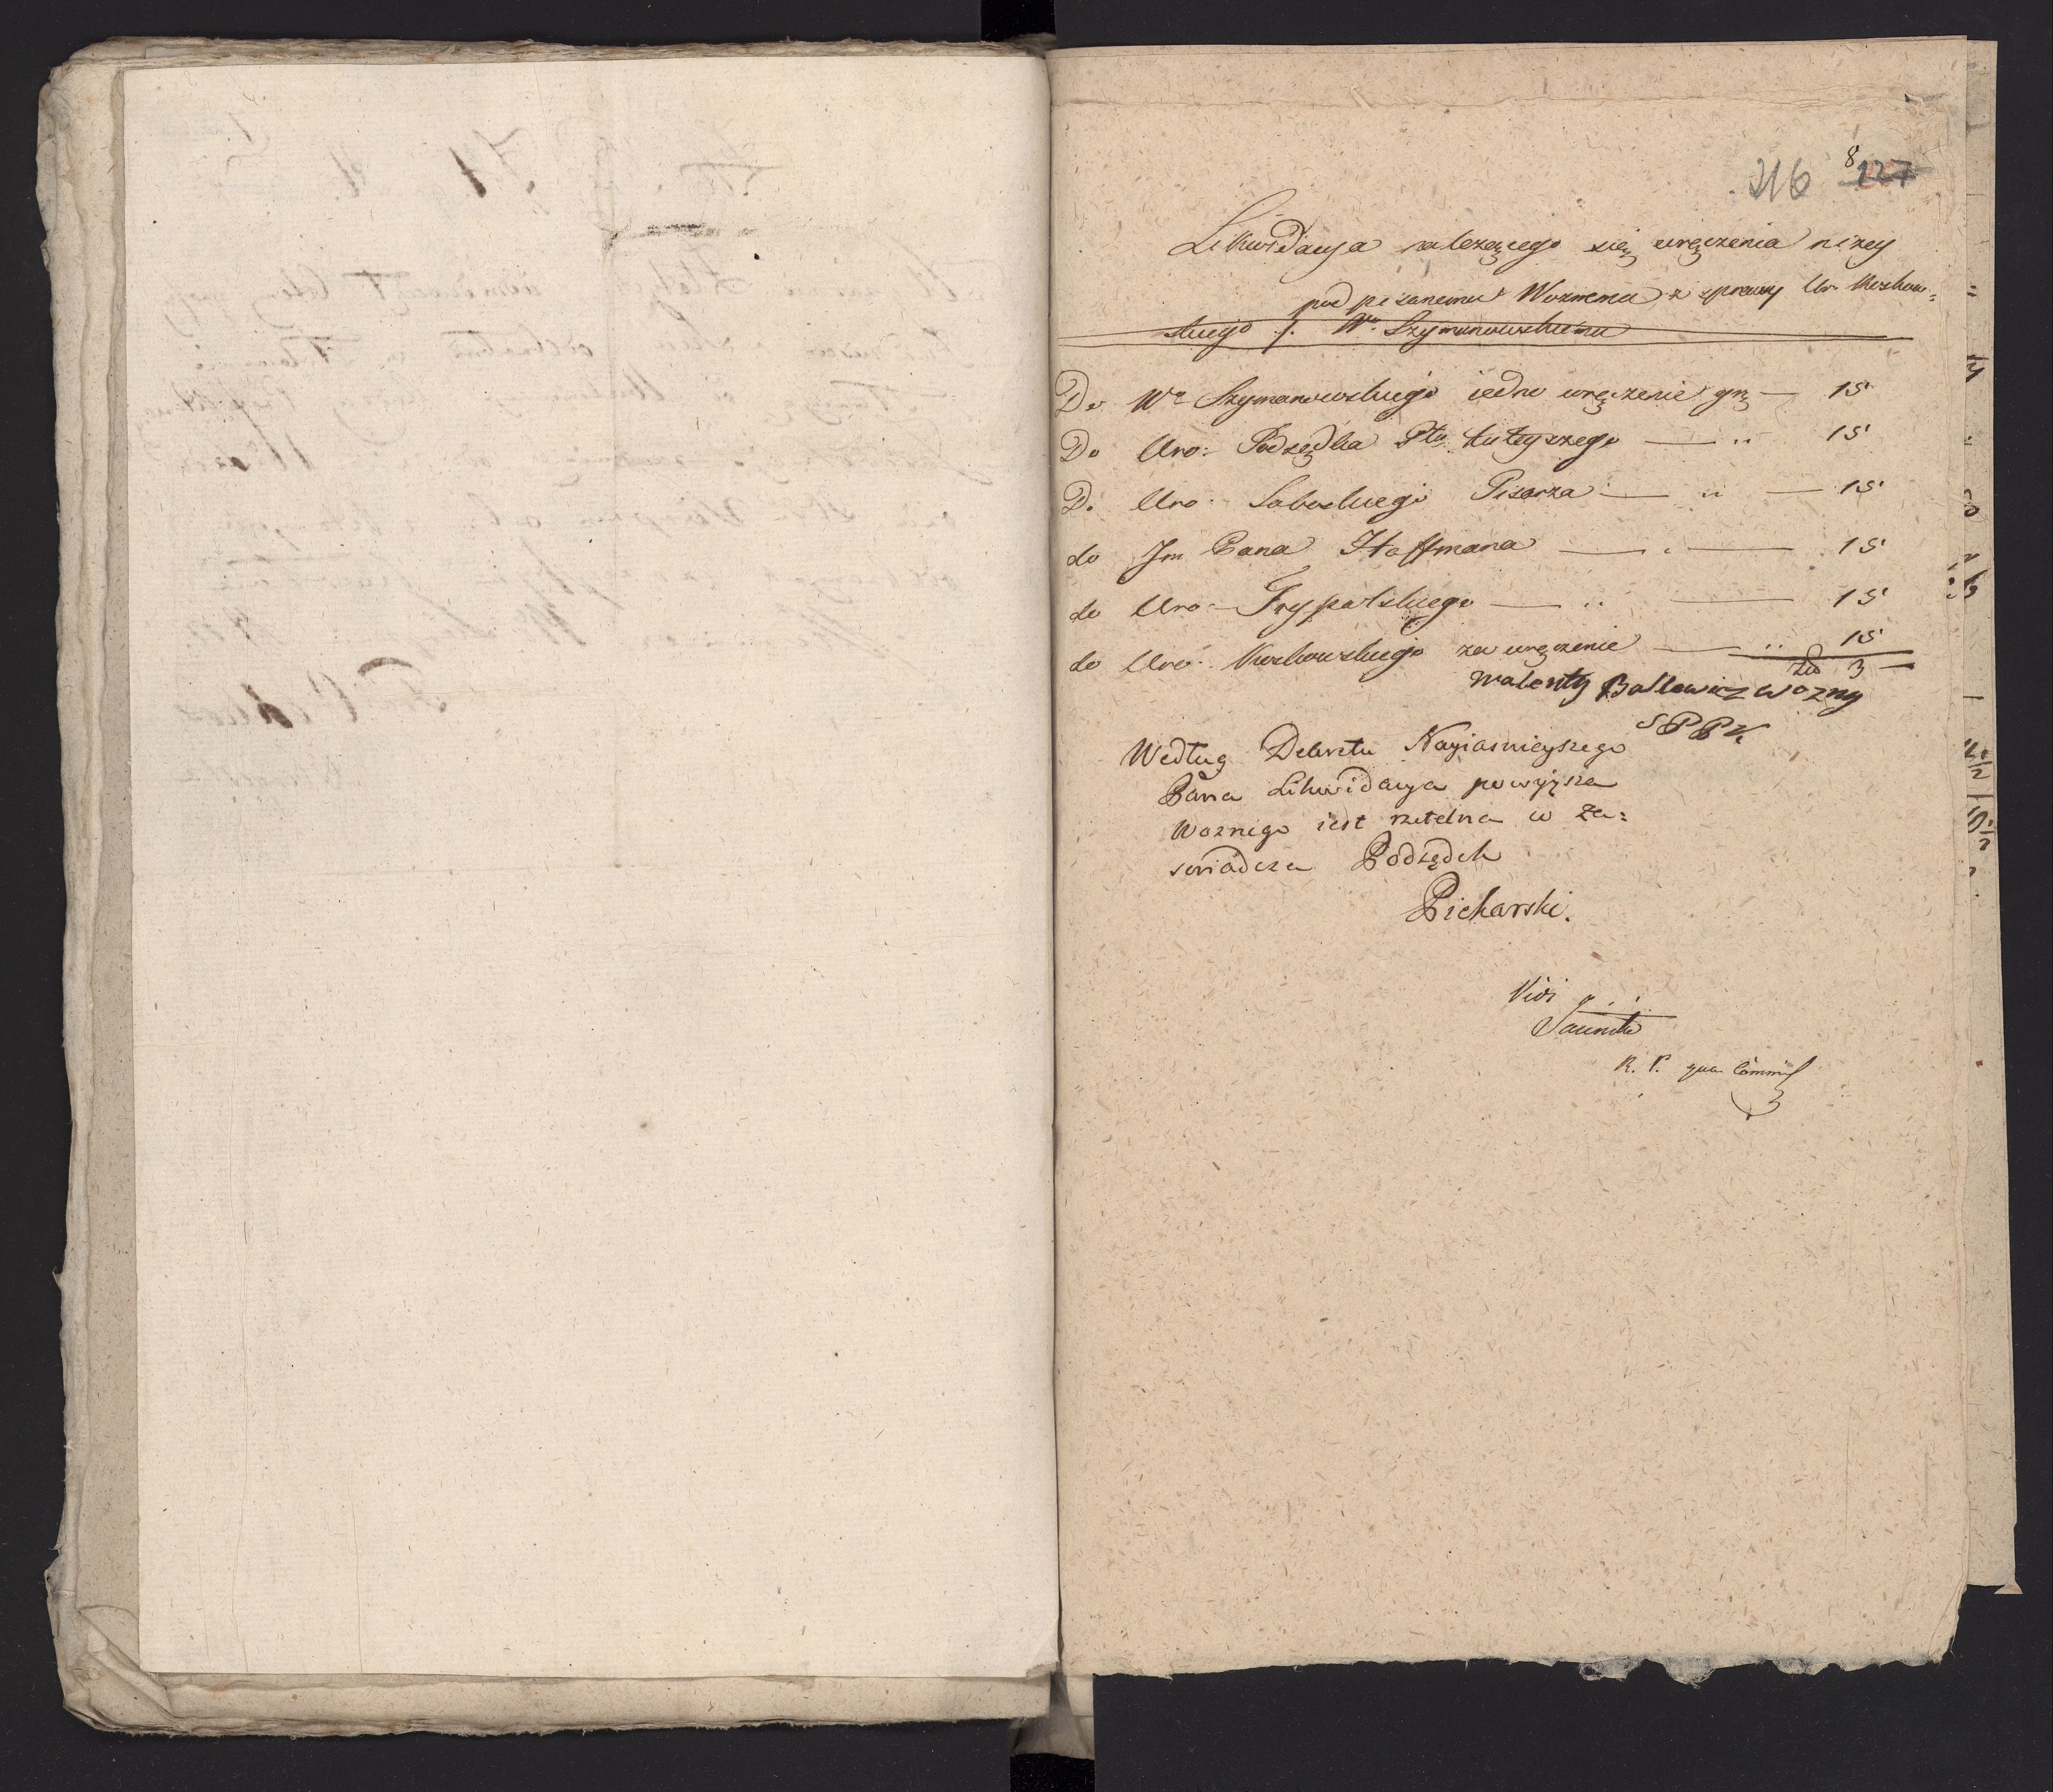 216 8 127
Likwidacya należącego się wręczenia niżey
pod pisanemu Woznemu z sprawy Ur. Koskow=
skiego /. Wo Szymanowskiemu
Do Wo Szymanowskiego iedno wręczenie gr — 15
Do Uro: Podsędka Ptu tuteyszego — " 15
Do Uro: Sobockiego Pisarza — " — 15
do Jm Pana Hoffmana — " — 15
do Uro: Trypolskiego — " — 15
do Uro: Koskowskiego za wręczenie — " 15
Złł 3 —
Walenty Ballewicz Wozny
S P P K.
Według Dekretu Nayiasnieyszego
Pana Likwidacya powyższa
Woznego iest rzetelna co za=
swiadcza Podsędek
Piekarski.
Vidi
R. P. qua Commis